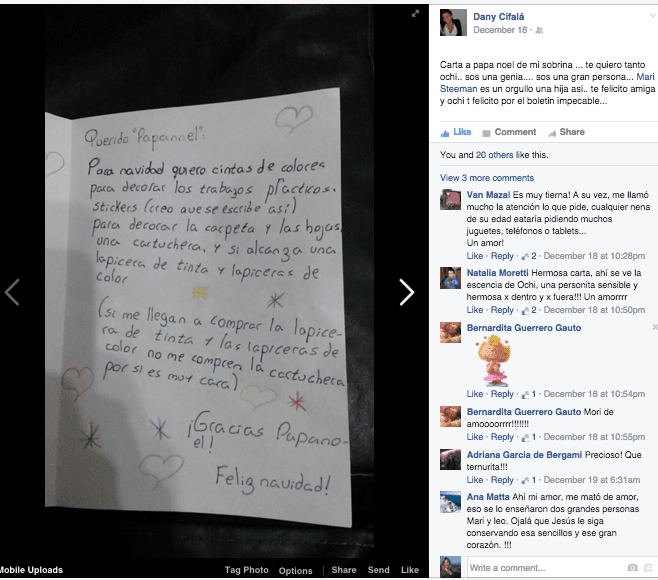 Querido "Papanoel":
Para navidad quiero cintas de colores
para decorar los trabajos prácticos.
stickers (creo que se escribe así)
para decorar la carpeta y las hojas,
una cartuchera, y si alcanza una
lapicera de tinta y lapiceras de
color
(si me llegan a comprar la lapice-
ra de tinta y las lapiceras de
color no me compren la cartuchera
por si es muy cara)
¡Gracias Papano-
el!
Feliz navidad!
Mobile Uploads
Tag Photo Options Share Send Like
Dany Cifalá
December 18 ·
Carta a papa noel de mi sobrina ... te quiero tanto
ochi.. sos una genia.... sos una gran persona... Mari
Steeman es un orgullo una hija asi.. te felicito amiga
y ochi t felicito por el boletin impecable...
Like Comment Share
You and 20 others like this.
View 3 more comments
Van Mazal Es muy tierna! A su vez, me llamó
mucho la atención lo que pide, cualquier nena
de su edad eataría pidiendo muchos
juguetes, teléfonos o tablets...
Un amor!
Like · Reply · 2 · December 18 at 10:28pm
Natalia Moretti Hermosa carta, ahí se ve la
escencia de Ochi, una personita sensible y
hermosa x dentro y x fuera!!! Un amorrrr
Like · Reply · 2 · December 18 at 10:50pm
Bernardita Guerrero Gauto
Like · Reply · 1 · December 18 at 10:54pm
Bernardita Guerrero Gauto Mori de
amooorrrr!!!!!!!
Like · Reply · 1 · December 18 at 10:55pm
Adriana Garcia de Bergami Precioso! Que
ternurita!!!
Like · Reply · 1 · December 19 at 6:31am
Ana Matta Ahí mi amor, me mató de amor,
eso se lo enseñaron dos grandes personas
Mari y leo. Ojalá que Jesús le siga
conservando esa sencillos y ese gran
corazón. !!!
Write a comment...